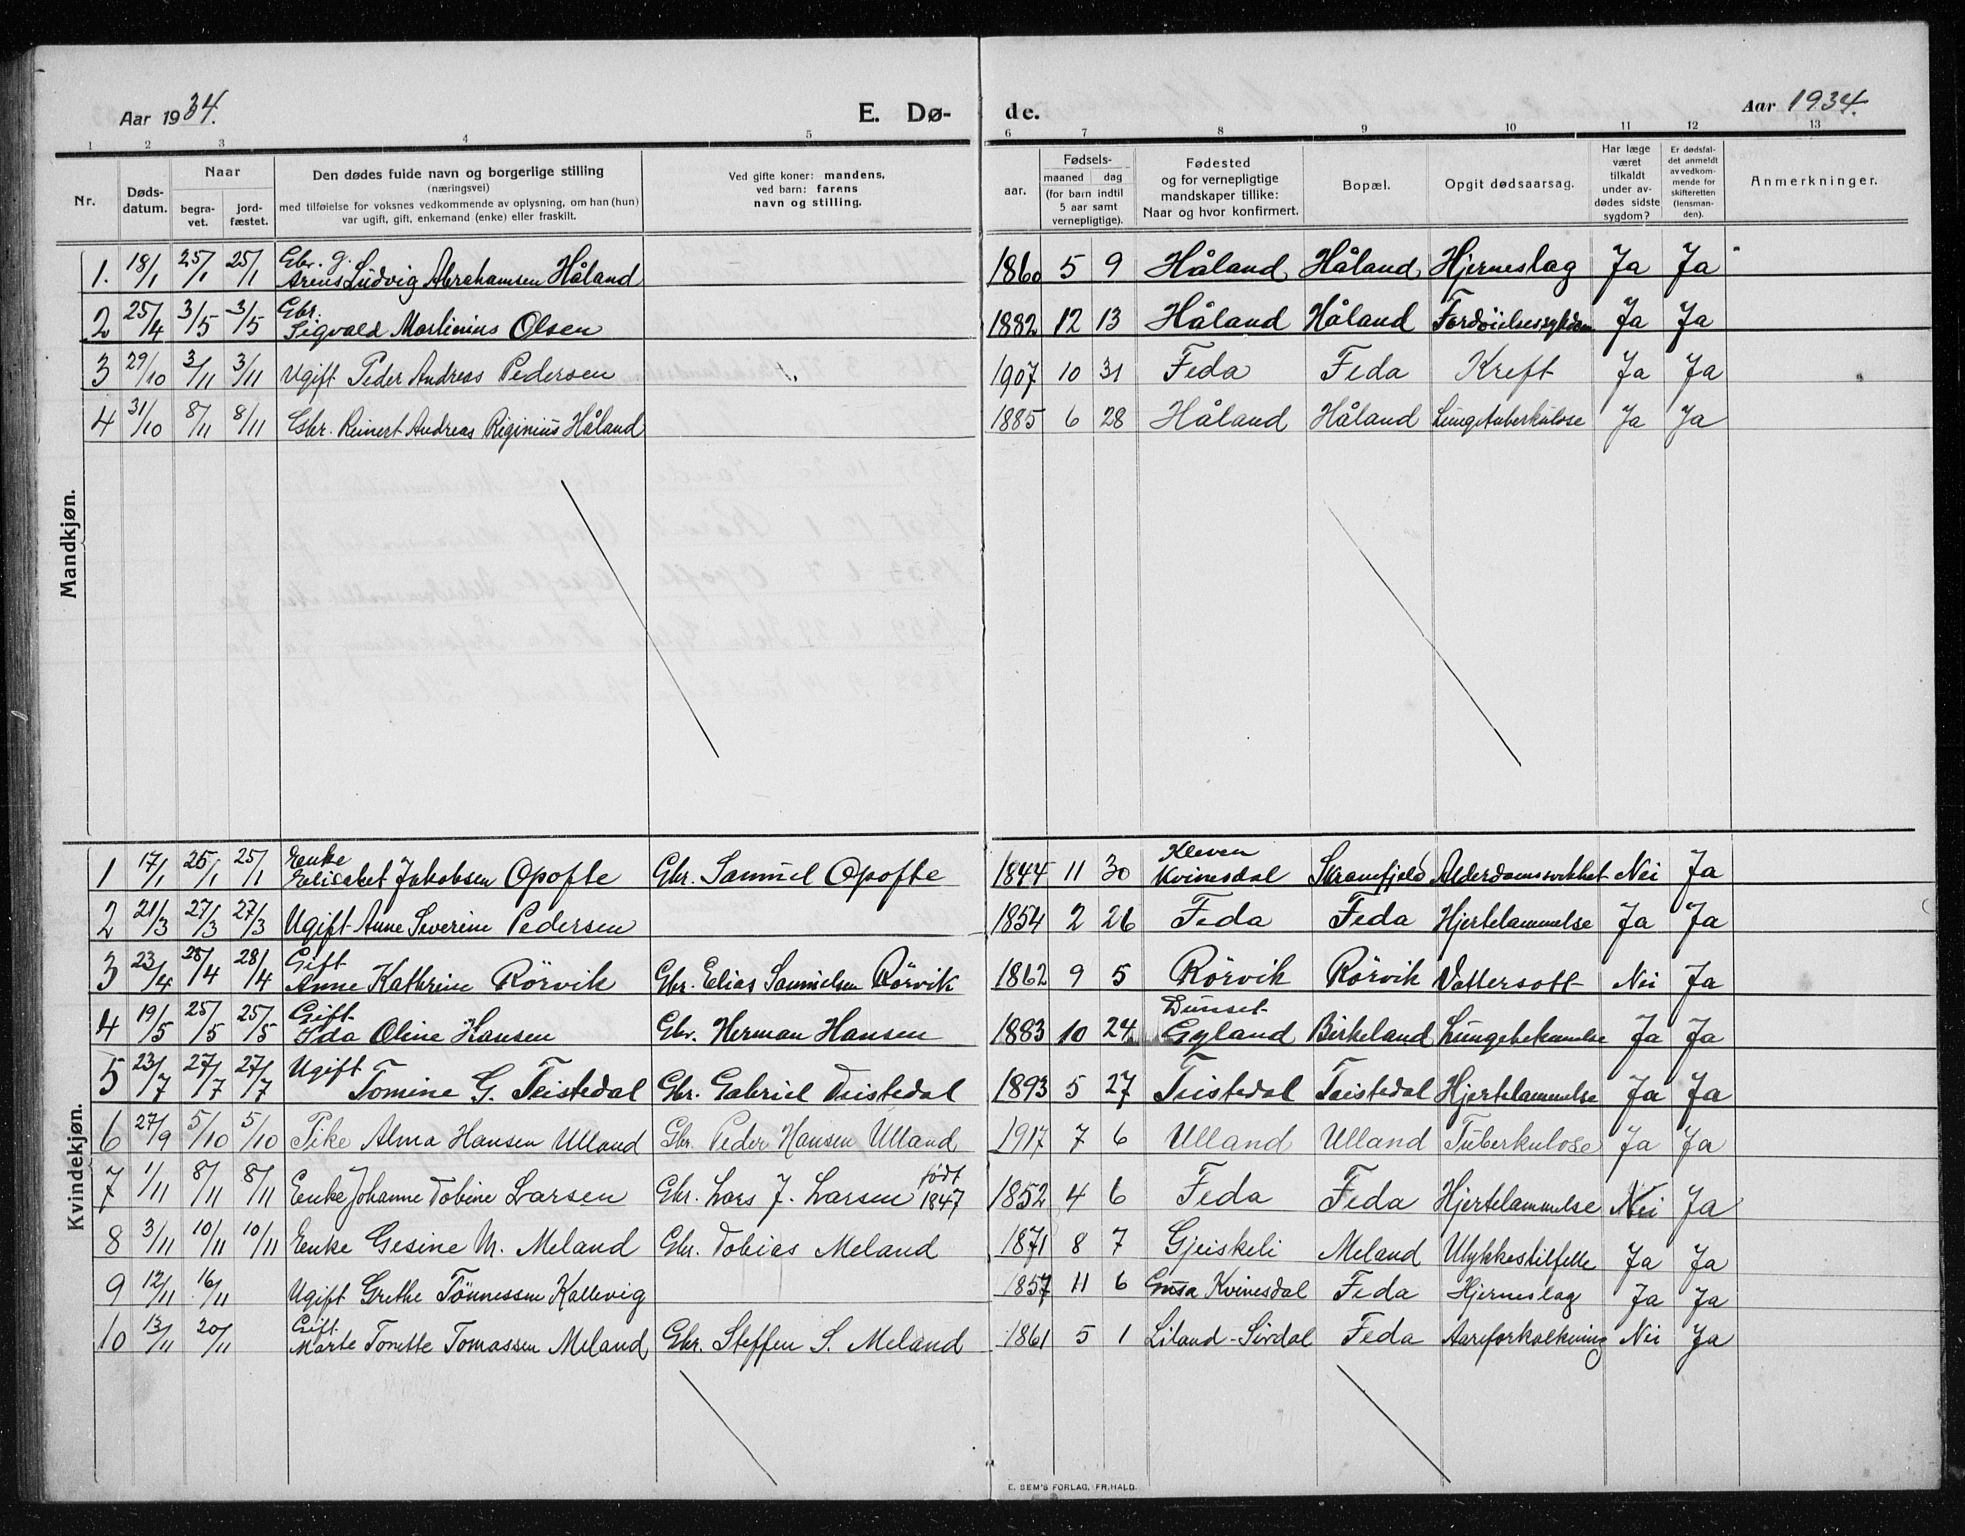 Aar 1934. E. Dø- de. Aar 1934.
1 2 3 4 5 6 7 8 9 10 11 12 13
Nr. Døds-datum. Naar begra-vet. jord-fæstet. Den dødes fulde navn og borgerlige stilling (næringsvei) med tilføielse for voksnes vedkommende av oplysning, om han (hun) var ugift, gift, enkemand (enke) eller fraskilt. Ved gifte koner: mandens, ved barn: farens navn og stilling. aar. Fødsels- maaned dag (for barn indtil 5 aar samt vernepligtige). Fødested og for vernepligtige mandskaper tillike: Naar og hvor konfirmert. Bopæl. Opgit dødsaarsag. Har læge været tilkaldt under av-dødes sidste sygdom? Er dødsfal-det anmeldt av vedkom-mende for skifteretten (lensman-den). Anmerkninger.
Mandkjøn.
1. 18/1 25/1 25/1 Gbr. g. Arent Ludvig Abrahamsen Håland 1860 5 9 Håland Håland Hjerneslag Ja Ja
2 25/4 3/5 3/5 Gbr. Sigvald Martinius Olsen 1882 12 13 Håland Håland Fordøielsessykdom Ja Ja
3 29/10 3/11 3/11 Ugift Peder Andreas Pedersen 1907 10 31 Feda Feda Kreft Ja Ja
4 31/10 8/11 8/11 Gbr. Reinert Andreas Reginius Håland 1885 6 28 Håland Håland Lungetuberkulose Ja Ja
Kvindekjøn.
1 17/1 25/1 25/1 Enke Elisabet Jakobsen Opofte Gbr. Samuel Opofte 1844 11 30 Kleven Kvinesdal Straumfjeld Alderdomssvekket Nei Ja
2 21/3 27/3 27/3 Ugift Anne Severine Pedersen 1854 2 26 Feda Feda Hjertelammelse Ja Ja
3 23/4 28/4 28/4 Gift Anne Kathrine Rörvik Gbr. Elias Samuelsen Rörvik 1862 9 5 Rörvik Rörvik Vattersott Nei Ja
4 19/5 25/5 25/5 Gift Ida Oline Hansen Gbr. Herman Hansen 1883 10 24 Dunset Gyland Birkeland Lungebetennelse Ja Ja
5 23/7 27/7 27/7 Ugift Tomine G. Teistedal Gbr. Gabriel Teistedal 1893 5 27 Teistedal Teistedal Hjertelammelse Ja Ja
6 27/9 5/10 5/10 Pike Alma Hansen Ulland Gbr. Peder Hansen Ulland 1917 7 6 Ulland Ulland Tuberkulose Ja Ja
7 1/11 8/11 8/11 Enke Johanne Tobine Larsen Gbr. Lars J. Larsen født 1847 1852 4 6 Feda Feda Hjertelammelse Nei Ja
8 3/11 10/11 10/11 Enke Gesine M. Meland Gbr. Tobias Meland 1871 8 7 Gjeiskeli Meland Ulykkestilfelle Ja Ja
9 12/11 16/11 Ugift Grethe Tönnessen Kallevig 1857 11 6 Gusa Kvinesdal Feda Hjerneslag Ja Ja
10 13/11 20/11 Gift Marte Tonette Tomassen Meland Gbr. Steffen S. Meland 1861 5 1 Liland-Sirdal Feda Aareforkalkning Nei Ja
E. SEM'S FORLAG, FR.HALD.